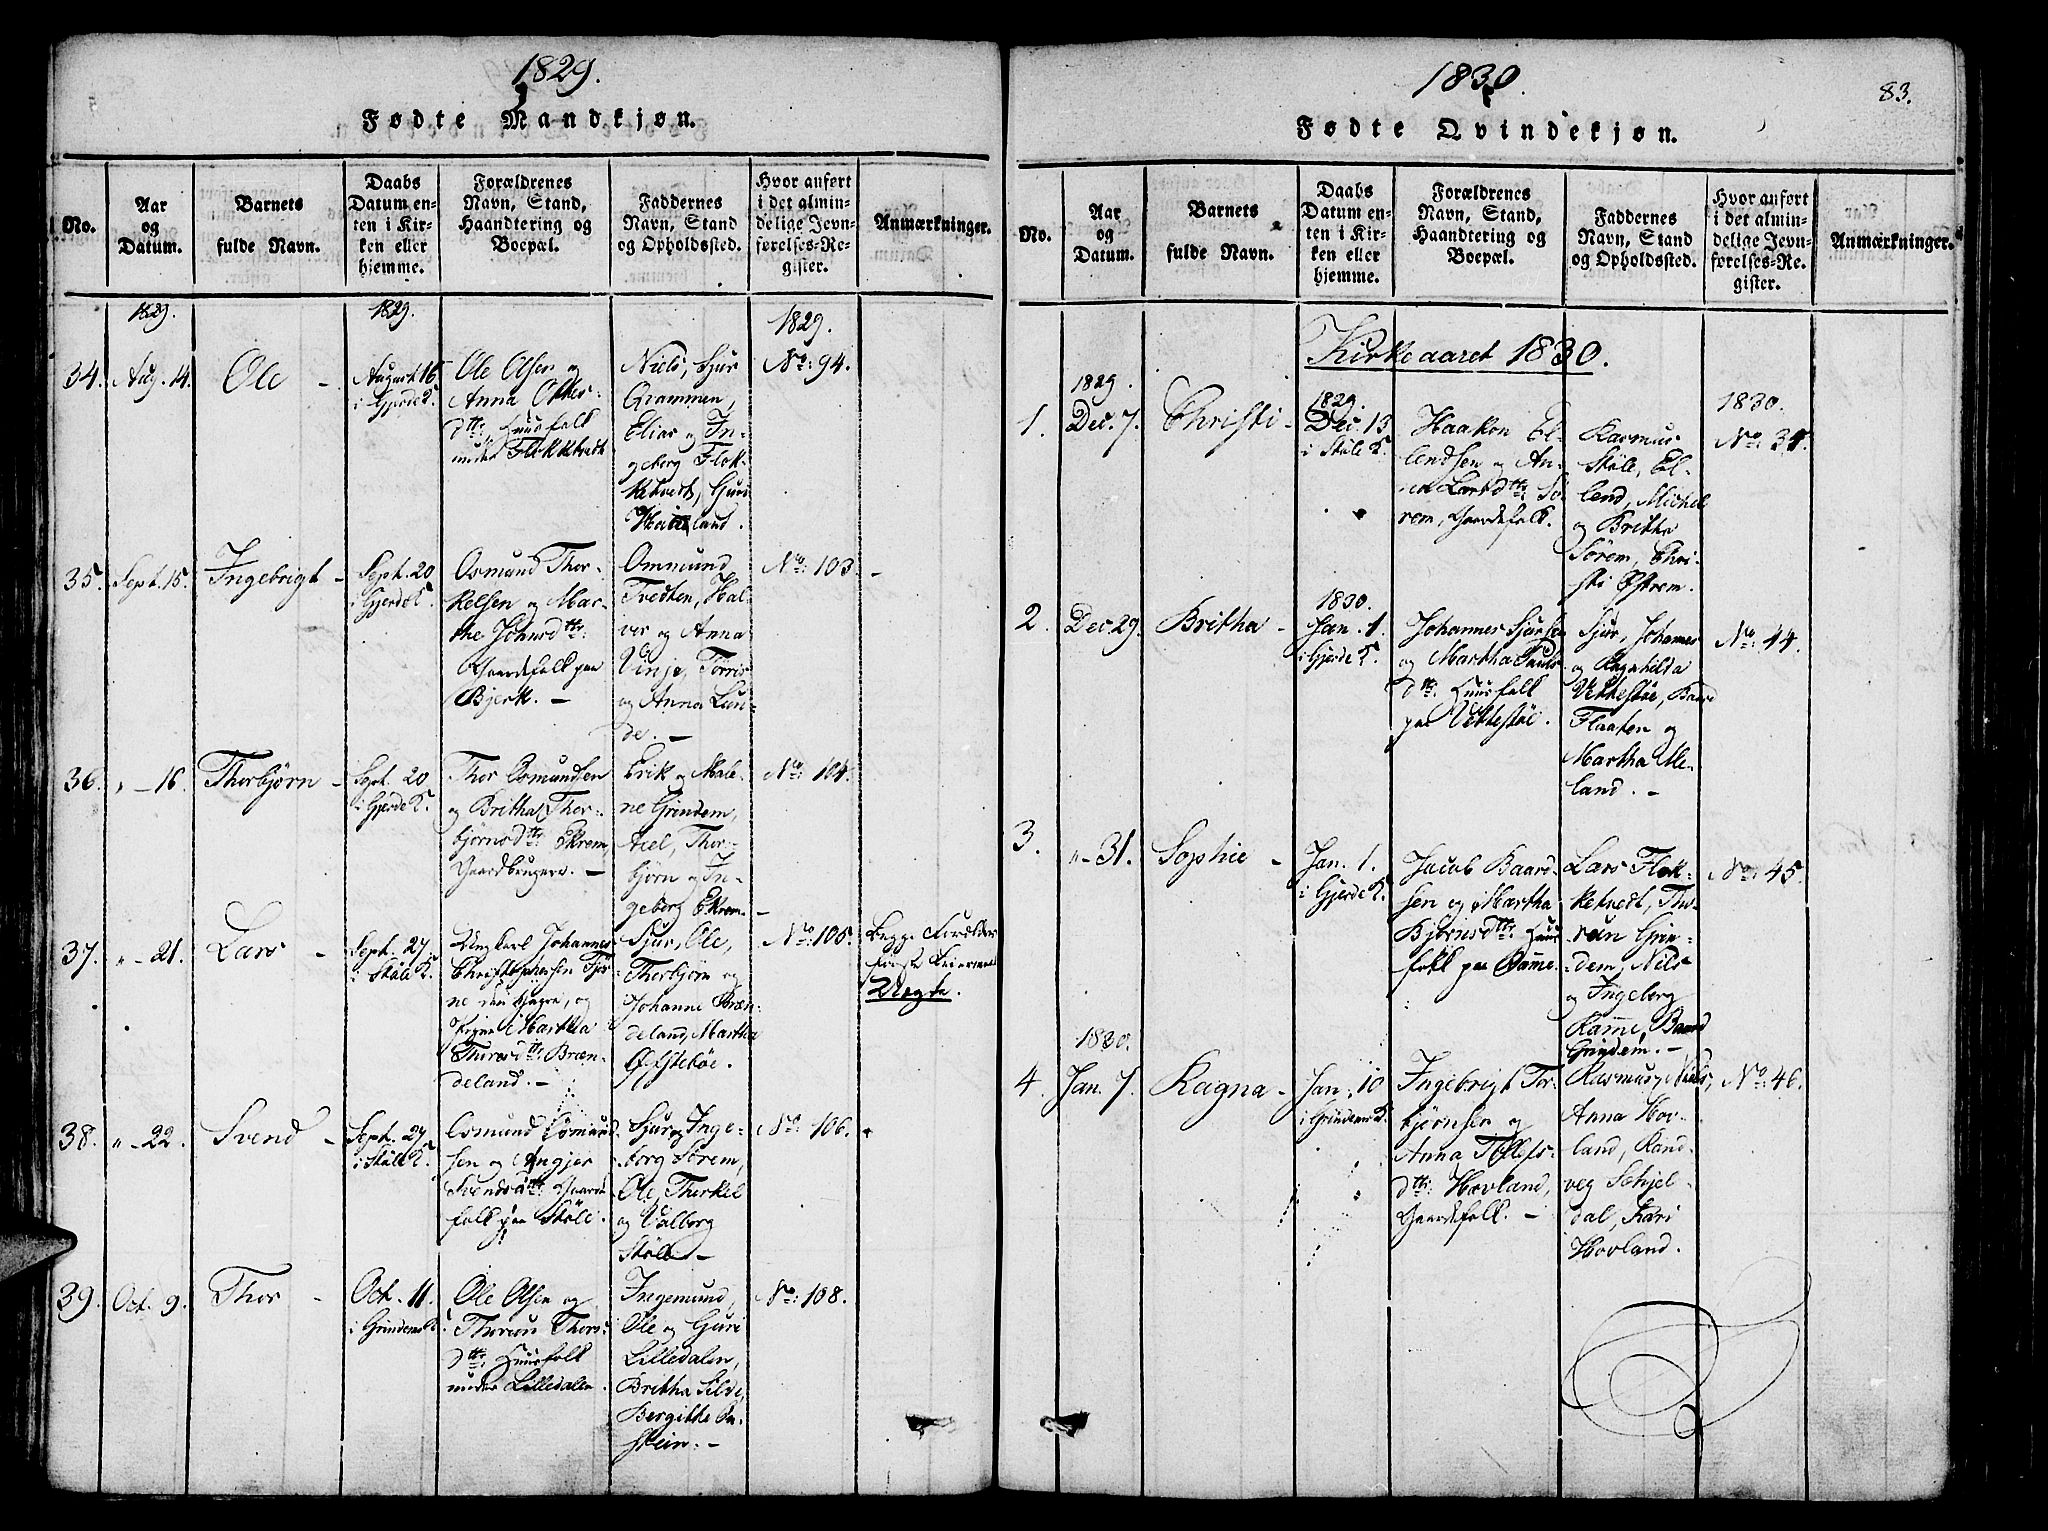 1829.
Fødte Mandkjøn.
No.
Aar
og
Datum.
Barnets
fulde Navn.
Daabs
Datum en-
ten i Kir-
ken eller
hjemme.
Forældrenes
Navn, Stand,
Haandtering og
Boepæl.
Faddernes
Navn, Stand
og Opholdssted.
Hvor anført
i det almin-
delige Jevn-
førelses-Re-
gister.
Anmærkninger.
1829.
1829.
1829.
34.
Aug. 14.
Ole -
August 16
i Gjerde K.
Ole Olsen og
Anna Olker-
dtr: Huusfolk
under Flokketvedt
Niels, Sjur
Qrammen,
Elias og In-
geborg Flok-
ketvedt, Guri
Hailand.
No: 94.
35.
Sept. 15.
Ingebrigt -
Sept. 20
i Gjerde K.
Osmund Thor-
kelsen og Mar-
the Johnsdtr:
Gaardefolk paa
Bjerk. -
Ommund
Tvedten, Hal-
vor og Anna
Vinje, Tørris
og Anna Lun-
de. -
No: 103. -
36.
" - 16.
Thorbjørn -
Sept. 20
i Gjerde K.
Thor Osmundsen
og Britha Thor-
bjørnsdtr: Ekrem,
Gaardbrugere. -
Erik og Male-
ne Grindem,
Axel, Thor-
bjørn og In-
geborg Ekrem. -
No: 104.
37.
" - 21.
Lars -
Sept. 27.
i Støle K.
Ungkarl Johannes
Christophersen Tjer-
ne
og
Pigen Martha
Thoresdtr: Bræn-
deland. -
Sjur, Ole,
Thorbjørn og
Johanne Bræn-
deland, Martha
Øfstebøe.
No: 105.
Begge Forældre
første Leiermaal
Uægte.
38.
" - 22.
Svend -
Sept. 27.
i Støle K.
Osmund Osmund-
sen og Angjer
Svendsdtr: Gaarde-
folk paa Støle.
Sjur og Inge-
borg Sørem,
Ole, Thorkel
og Valborg
Støle. -
No: 106.
39.
Oct. 9.
Thor -
Oct. 11.
i Grindem K.
Ole Olsen og
Thoren Thors-
dtr: Huusfolk
under Lilledalen.
Ingemund,
Ole og Guri
Lilledalen,
Britha Silde,
Bergithe En-
stein. -
No: 108.
1830.
83.
Fødte Qvindekjøn.
No.
Aar
og
Datum.
Barnets
fulde Navn.
Daabs
Datum en-
ten i Kir-
ken eller
hjemme.
Forældrenes
Navn, Stand,
Haandtering og
Boepæl.
Faddernes
Navn, Stand
og Opholdssted.
Hvor anført
i det almin-
delige Jevn-
førelses-Re-
gister.
Anmærkninger.
Kirkeaaret 1830.
1.
1829.
Dec. 7.
Christi -
1829.
Dec. 13
i Støle K.
Haakon El-
lendsen og An-
na Larsdtr: Sø-
rem, Gaardefolk.
Rasmus
Støle, El-
lend, Michel
og Britha
Sørem, Chri-
sti Østrem.
1830.
No: 34.
2.
Dec. 29.
Britha -
1830.
Jan. 1.
i Gjerde K.
Johannes Sjursen
og Martha Pauls-
dtr: Huusfolk
paa Vettestøe.
Sjur, Johannes
og Ragnhilda
Vettestøe, Baard
Flaaten og
Martha Me-
land. -
No: 44.
3.
" - 31.
Sophie -
Jan. 1.
i Gjerde K.
Jacob Baard-
sen og Martha
Bjørnsdtr: Huus-
folk paa Ramme.
Lars Flok-
ketvedt, Tho-
ren Grin-
dem, Nils
og Ingeborg
Ramme, Baard
Grindem. -
No: 45.
4.
1830.
Jan. 7.
Ragna -
Jan. 10
i Grindem K.
Ingebrigt Tor-
bjørnsen og
Anna Tollefs-
dtr: Hovland,
Gaardefolk. -
Rasmus, Niels,
Anna Hov-
land, Rand-
veg Schjel-
dal, Kari
Hovland.
No: 46.